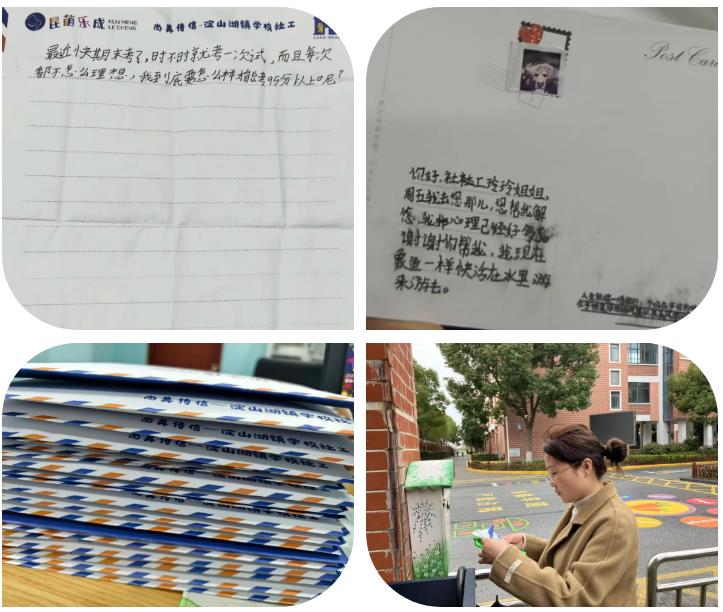 昆萌乐成 KUN MENG LE CHENG
尚美传信-淀山湖镇学校社工
最近快期末考了,时不时就考一次试,而且每次
都不怎么理想,我到底要怎么样才能考95分以上呢?
Post Car
你好,社工玲玲姐姐,
周五我去您那儿,您帮我解
惑,我心理已经好多了
谢谢你帮我,我现在
像鱼一样快活在水里游
来游去。
尚美传信-淀山湖镇学校社工
尚美传信-淀山湖镇学校社工
尚美传信-淀山湖镇学校社工